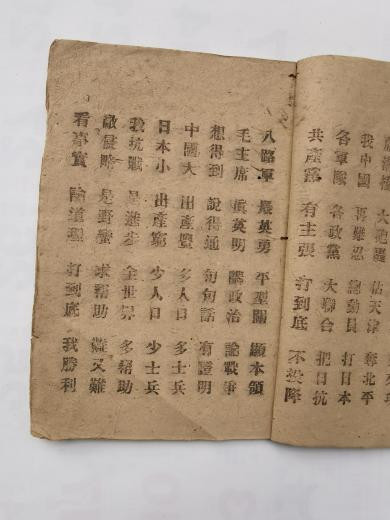 佔天津 奪北平
我中國 再難忍 總動員 打日本
各軍隊 各政黨 大聯合 把日抗
共產黨 有主張 打到底 不投降
八路軍 最英勇 平型關 顯本領
毛主席 眞英明 講政治 論戰事
想得到 說得通 句句話 有證明
中國大 出產豐 多人口 多士兵
日本小 出產窮 少人口 少士兵
我抗戰 是進步 全世界 多幫助
敵侵略 是野蠻 求幫助 難又難
看事實 論道理 打到底 我勝利